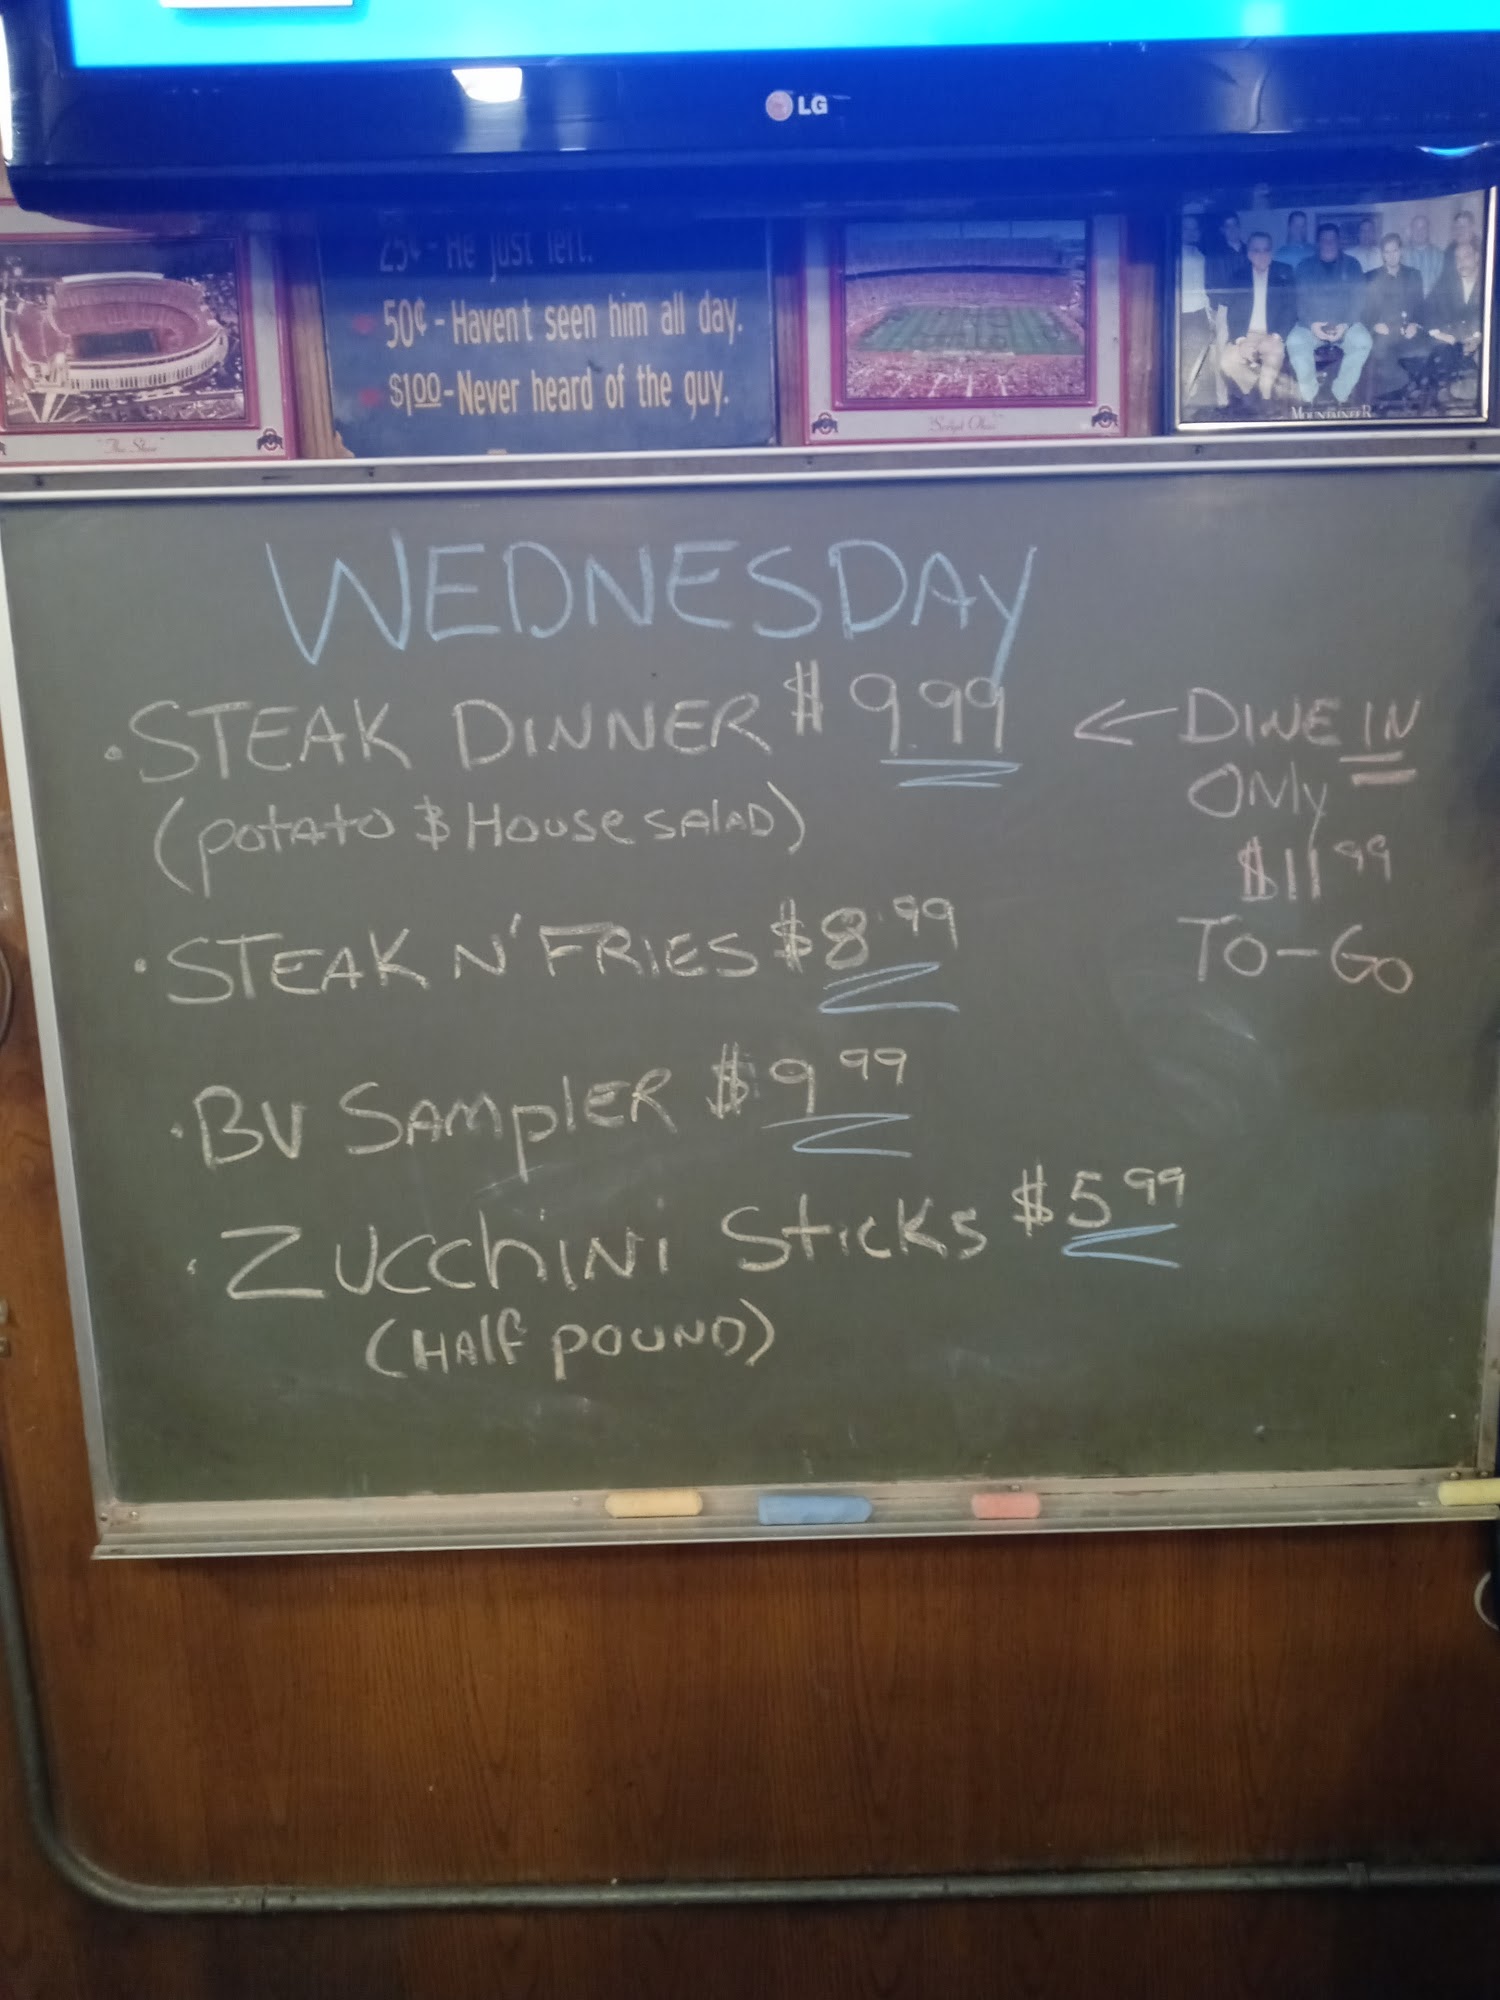 LG
25¢ - He just left.
50¢ - Haven't seen him all day.
$1.00 - Never heard of the guy.
"Script Ohio"
MOUNTAINEER
WEDNESDAY
• STEAK DINNER $9.99 ← DINE IN
ONLY
(potato & House salad)
$11.99
TO-GO
• STEAK N' FRIES $8.99
• BV SAMPLER $9.99
• ZUCChINI Sticks $5.99
(HAlf POUND)